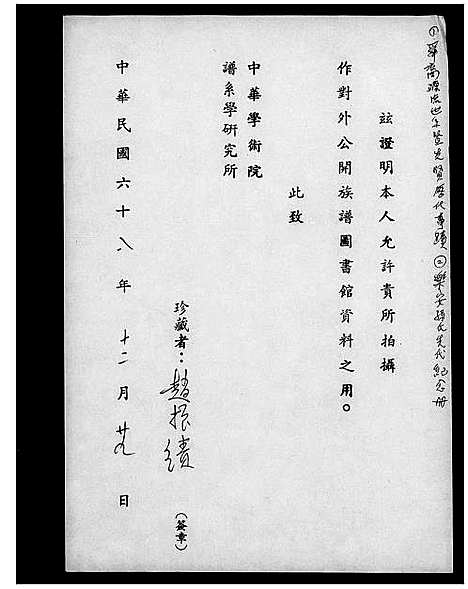 ①舜裔源流世系暨先賢歷代事蹟 ②樂安孫氏先代紀念冊
玆證明本人允許貴所拍攝
作對外公開族譜圖書館資料之用。
此致
中華學術院
譜系學研究所
珍藏者：趙振績
（簽章）
中華民國六十八年十二月廿九日